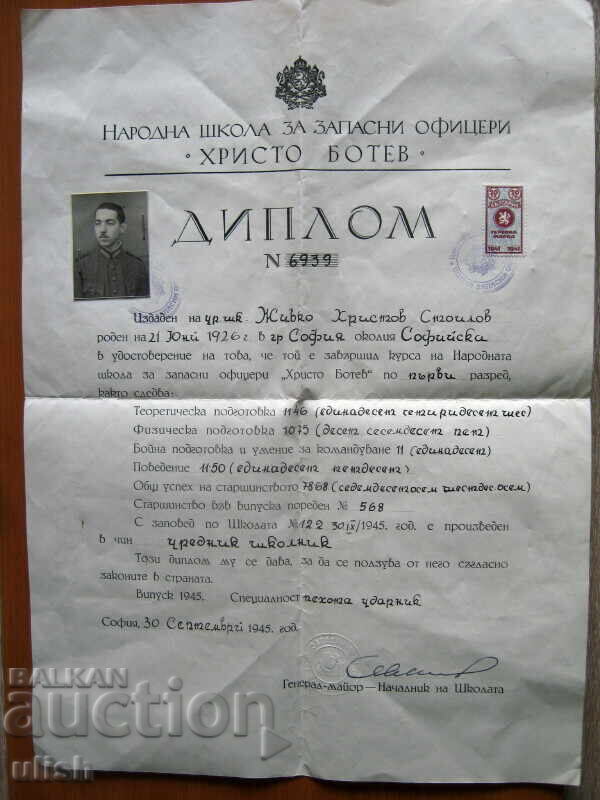 Народна школа за запасни офицери
· Христо Ботев ·
Диплом
N 6939
1941 1941
Издаден на ур. шк. Живко Христов Стоилов
роден на 21 Юний 1926 г. в гр София околия Софийска
в удостоверение на това, че той е завършил курса на Народната
школа за запасни офицери „Христо Ботев“ по първи разред,
както следва:
Теоретическа подготовка 11·46 (единадесет четиридесет шес)
Физическа подготовка 10·75 (десет седемдесет пет)
Бойна подготовка и умение за командуване 11 (единадесет)
Поведение 11·50 (единадесет петдесет)
Общ успех на старшинството 78·68 (седемдесетосем шестдес. осем)
Старшинство във випуска пореден № 568
С заповед по Школата № 122 30/IX/1945. год. е произведен
в чин урядник школник
Този диплом му се дава, за да се ползува от него съгласно
законите в страната.
Випуск 1945. Специалност пехота ударник
София, 30 Септемврий 1945. год.
Генерал-майор — Началник на Школата
BALKAN
auction
ulish